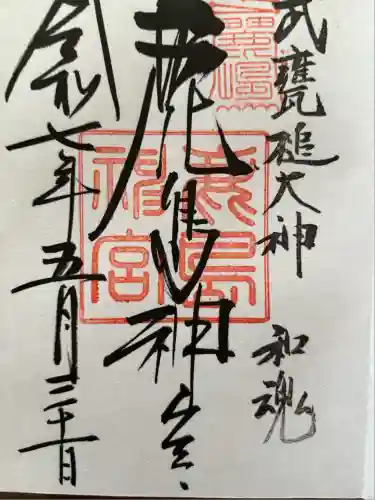 武甕槌大神 和魂
鹿島神宮
令和七年五月三十日
鹿島神宮